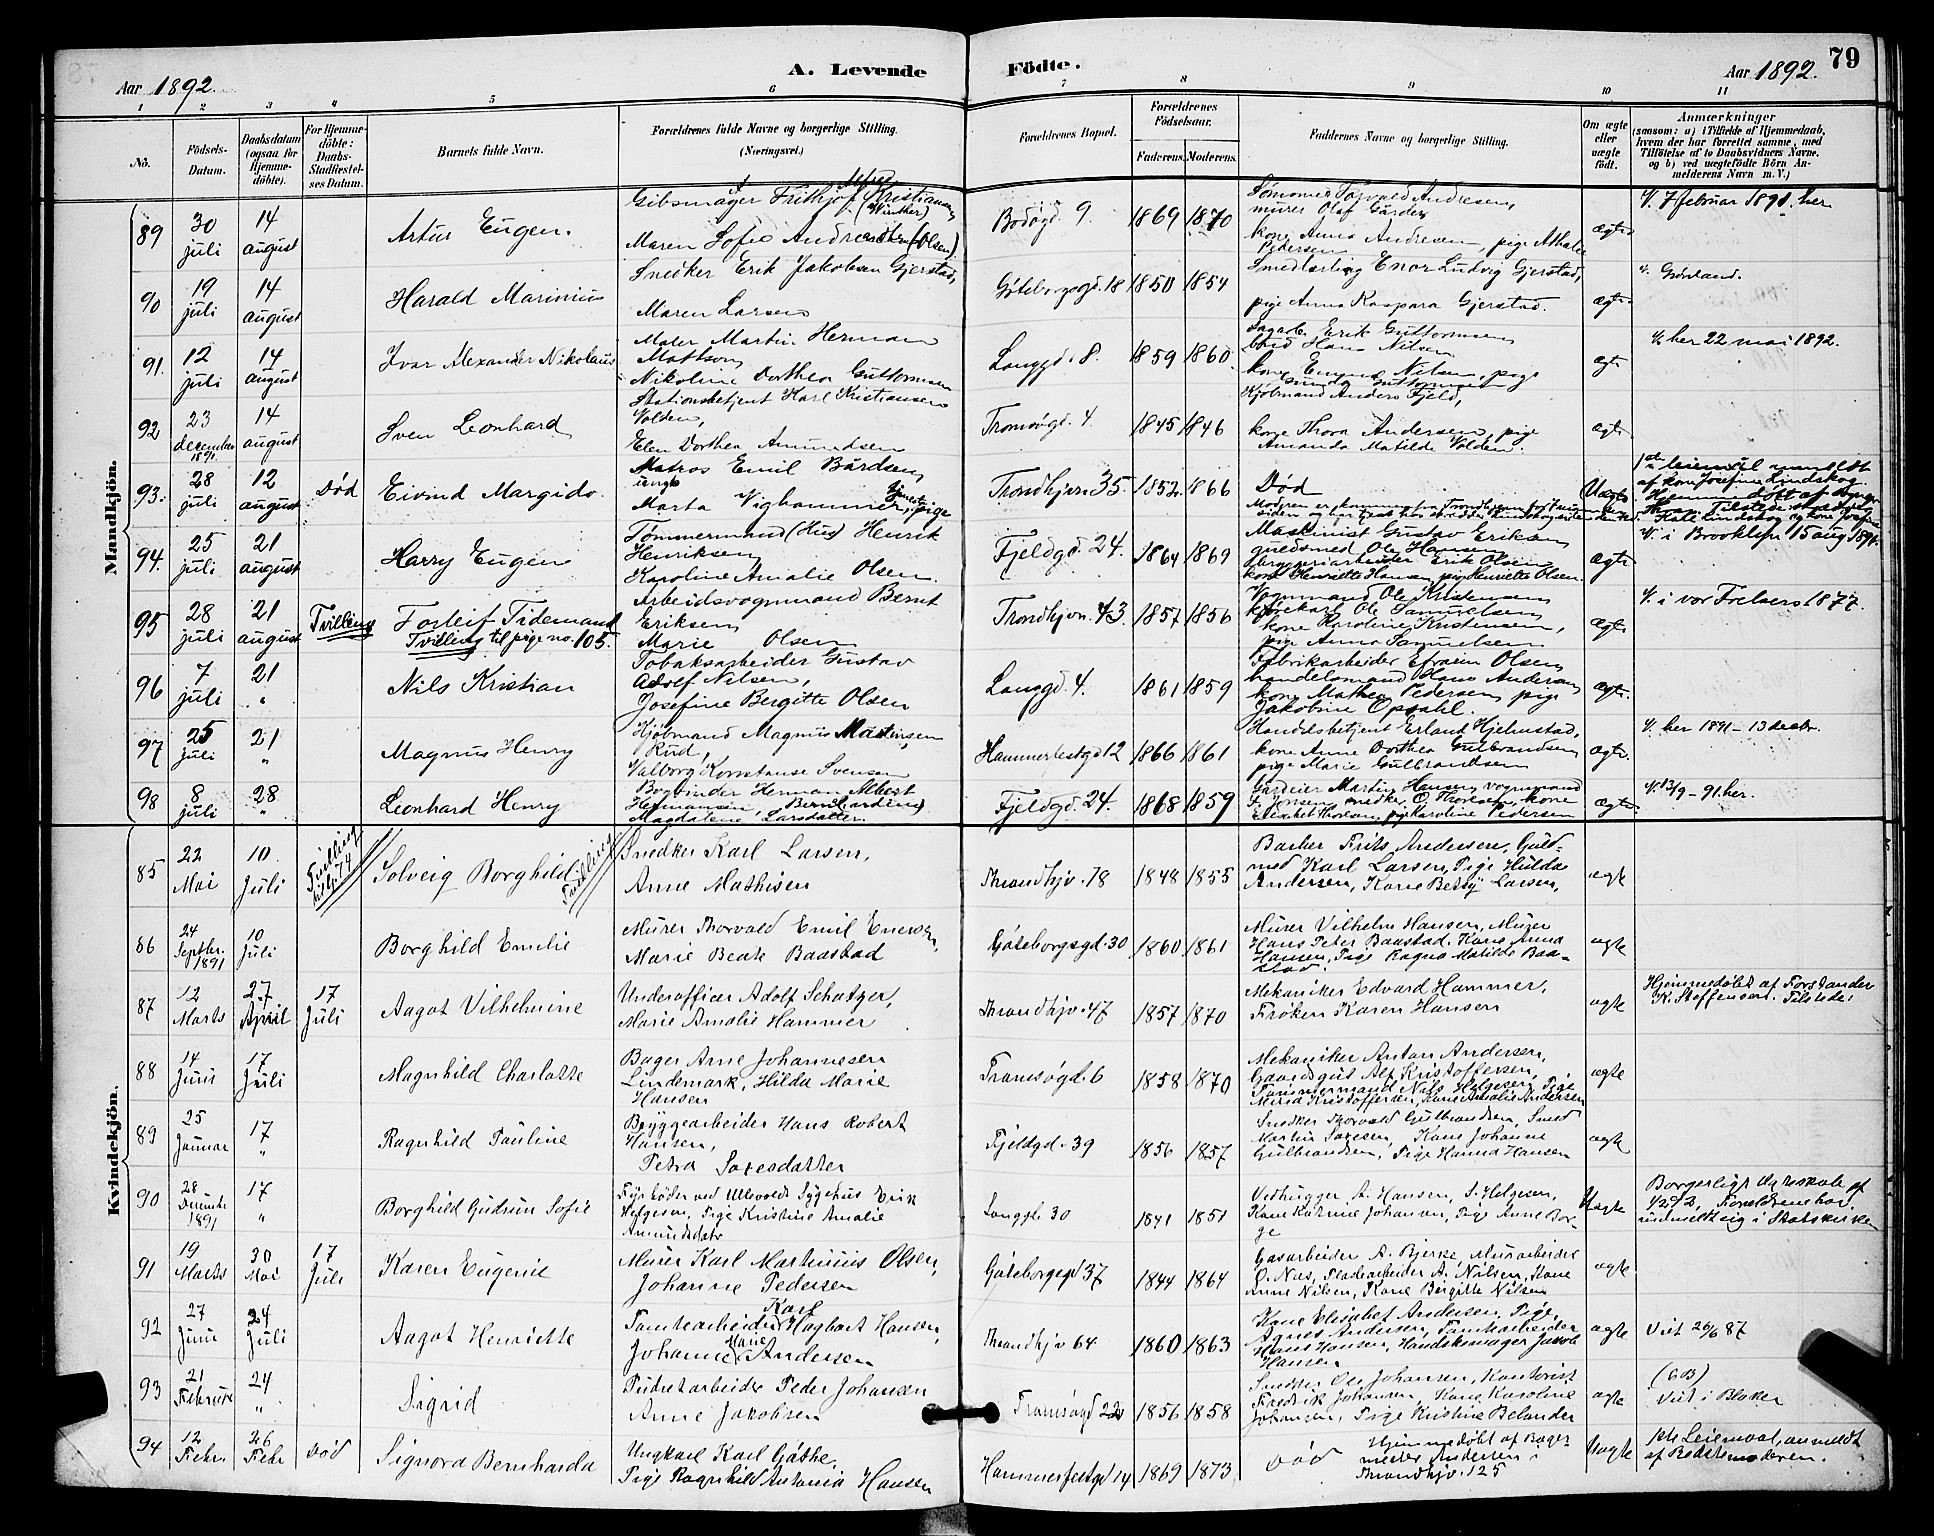 Aar 1892.
A. Levende
Födte.
Aar 1892.
79
1 2 3 4 5 6 7 8 9 10 11
No.
Födsels-Datum.
Daabsdatum (ogsaa for Hjemme-döbte).
For Hjemme-döbte: Daabs-Stadfæstel-ses Datum.
Barnets fulde Navn.
Forældrenes fulde Navne og borgerlige Stilling. (Næringsvei.)
Forældrenes Bopæl.
Forældrenes Födselsaar.
Faderens. Moderens.
Faddernes Navne og borgerlige Stilling.
Om ægte eller uægte födt.
Anmærkninger
(saasom: a) i Tilfælde af Hjemmedaab, hvem der har forrettet samme, med Tilföielse af to Daabsvidners Navne, og b) ved uægtefödte Börn Anmelderens Navn m. V.)
Mandkjön.
89
30 juli
14 august
Artur Eugen.
Gibsmager Frithjof Kristiansen (Winther)
Maren Sofie Andrea (Olsen)
Bodøgd. 9.
1869 1870
murer Olaf Gårder
kone Anna Andresen, pige
Pedersen
ægte
V. 7 februar 1891. her
90
19 juli
14 august
Harald Marinius
Snedker Erik Jakobsen Gjerstad,
Maren Larsen
Gøteborgsgd. 18
1850 1854
Smedlærling Enor Ludvig Gjerstad,
pige Anna Kaspara Gjerstad.
ægte
V. Grønland.
91.
12 juli
14 august
Ivar Alexander Nikolaus
Maler Martin Herman Mattson,
Nikoline Dorthea Guttormsen
Langgd. 8.
1859 1860
Erik Guttormsen
Hans Nilsen
kone Nilsen, pige
Guttormsen
ægte
V. her 22 mai 1892.
92
23 december 1891.
14 august
Sven Leonhard
Stationsbetjent Karl Kristiansen Volden,
Elen Dorthea Amundsen
Tromsøgd. 4.
1845 1846
Kjøbmand Anders Fjeld,
kone Thora Andersen, pige
Amanda Matilde Volden.
ægte
93.
28 juli
12 august
Død
Eivind Margido.
Matros Emil Bårdsen
Marta Vighammer, pige
Trondhjvn 35.
1852. 1866
Død
Uægte
af kone Josefine Lindskog.
94.
25 juli
21 august
Harry Eugen
Tømmermand (Hus) Henrik Henriksen,
Karoline Amalie Olsen.
Fjeldgd. 24.
1864 1869
Maskinist Gustav Eriksen
guldsmed Ole Hansen
bryggeriarbeider Erik Olsen
kone Henriette Hansen, pige Henriette Olsen.
ægte
V. i Brooklyn 15 aug 1891.
95
28 juli
21 august
Tvilling
Torleif Tidemand
Tvilling til pige no. 105.
Arbeidsvognmand Bernt Eriksen,
Marie Olsen
Trondhjvn. 43.
1857 1856
Vognmand Ole Kristensen
kjørekarl Ole Samuelsen
kone Karoline Kristensen,
pige Anna Samuelsen
ægte
V. i vor Frelsers 1877.
96
7 juli
21 "
Nils Kristian
Tobaksarbeider Gustav Adolf Nilsen,
Josefine Bergitte Olsen
Langgd. 4.
1861 1859
Fabrikarbeider Efraim Olsen
handelsmand Hans Andersen
kone Mathea Pedersen, pige
Jakobine Opsahl.
ægte.
97
25 juli
21 "
Magnus Henry
Kjøbmand Magnus Martinsen Rud,
Valborg Konstanse Svensen
Hammerfestgd 12
1866 1861
Handelsbetjent Erland Hjelmstad,
kone Anne Dorthea Gulbrandsen
pige Marie Gulbrandsen
ægte.
V. her 1891 - 13 decbr.
98
8 juli
28 "
Leonhard Henry
Bogbinder Herman Albert Hermansen,
Magdalene Bernhardine Larsdatter
Fjeldgd. 24.
1868 1859
Gårdeier Martin Hansen, vognmand
Jonsen, snedker O. Thoresen, kone
Elisabet Thoresen, pige Karoline Pedersen
ægte
V. 13/9 - 91. her.
Kvindekjön.
85
22 Mai
10 Juli
Tvilling
Solveig Borghild
Tvilling
Snedker Karl Larsen,
Anne Mathisen
Throndhjv. 78
1848 1855
Barber Frits Andersen, Guld-
smed Karl Larsen, Pige Hulda
Andersen, Kone Betsy Larsen,
ægte
86
24 Septbr. 1891
10 Juli
Borghild Emilie
Murer Thorvald Emil Enersen,
Marie Beate Baastad
Göteborgsgd. 30
1860 1861
Murer Vilhelm Hansen, Murer
Hans Peter Baastad, Kone Anna
Hansen, Pige Ragna Matilde Baa-
stad.
ægte
87
12 Marts
27 April
17 Juli
Aagot Vilhelmine
Underofficer Adolf Schatzer,
Marie Amalie Hammer
Throndhjv. 47
1857 1870
Mekaniker Edvard Hammer,
Frøken Karen Hansen
ægte
Hjemmedøbt af Forstander
K. Steffensen. Tilstede:
88
14 Juni
17 Juli
Magnhild Charlotte
Bager Arne Johannesen
Lindemark, Hilda Marie
Hansen
Tromsøgd. 6
1858 1870
Mekaniker Anton Andersen,
Gaardsgut Alf Kristoffersen,
Tømmermand Nils Helgesen, Pige
Maria Kristoffersen, Kone Amalie Andersen
ægte
89
25 Januar
17 "
Ragnhild Pauline
Bryggearbeider Hans Robert
Hansen,
Petra Sørensdatter
Fjeldgd. 39
1856 1857
Snedker Thorvald Gulbrandsen, Smed
Martin Sørensen, Kone Johanne
Gulbrandsen, Pige Hanna Hansen
ægte
90
28 Decembr 1891
17 "
Borghild Gudrun Sofie
Fyrbøder ved Ullevolds Sygehus Erik
Helgesen, Pige Kristine Amalie
Amundsdatr
Langgt. 30
1841 1851
Vedhugger A. Hansen, S. Helgesen,
Kone Katrine Johansen, Pige Anne Bor-
ge
Uægte
Borgerligt Ægteskab af
Forældrene har
indmeldt sig i Statskirken
91
19 Marts
30 Mai
17 Juli
Karen Eugenie
Murer Karl Martinius Olsen,
Johanne Pedersen
Göteborgsgd 37
1844 1864
Gasarbeider A. Bjerke, Murarbeider
O. Næs, Pladearbeider A. Nilsen, Kone
Anne Nilsen, Kone Birgitte Nilsen
ægte
92
27 Juni
24 Juli
Aagot Henriette
Tomtearbeider Karl Hagbart Hansen,
Johanne Marie Andersen
Throndhjv 64
1860 1863
Kone Elisabet Andersen, Pige
Agnes Andersen, Tomtearbeider
Hans Hansen, Handskemager Jacob
Hansen
ægte
Viet 26/6 87
93
21 Februar
24 "
Sigrid
Pudretarbeider Peder Johansen
Anne Jakobsen
Tromsøgd 22
1856 1858
Snedker Ole Johansen, Kontorist
Fredrik Johansen, Kone Karoline
Johansen, Pige Kristine Belander
ægte
Viet i Blaker
94
12 Febr.
26 Febr
Død
Signora Bernharda
Ungkarl Karl Göthe,
Pige Ragnhild Antonia Hansen
Hammerfestgd 14
1869 1873
Død
Hjemmedøbt af Bager-
mester Andersen i
Throndhjv. 125
Uægte
1ste Leiermaal, anmeldt
af Bedstemoderen.